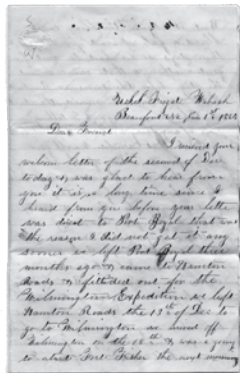 Frigat Wabash
Beaufort
Dear Friend
I received your
welcom letter of the second of Dec
today & was glad to hear from
you it is a long time since I
heard from you before your letter
was direct to Port Royal that was
the reason I did not get it any
sooner we left Port Royal three
months ago & came to Hamton
Roads & fitted out for the
Wilmington Expedition we left
Hamton Roads the 13th of Dec to
go to Wilmington we
on the & was a going
to atact Fort Fisher the next morning